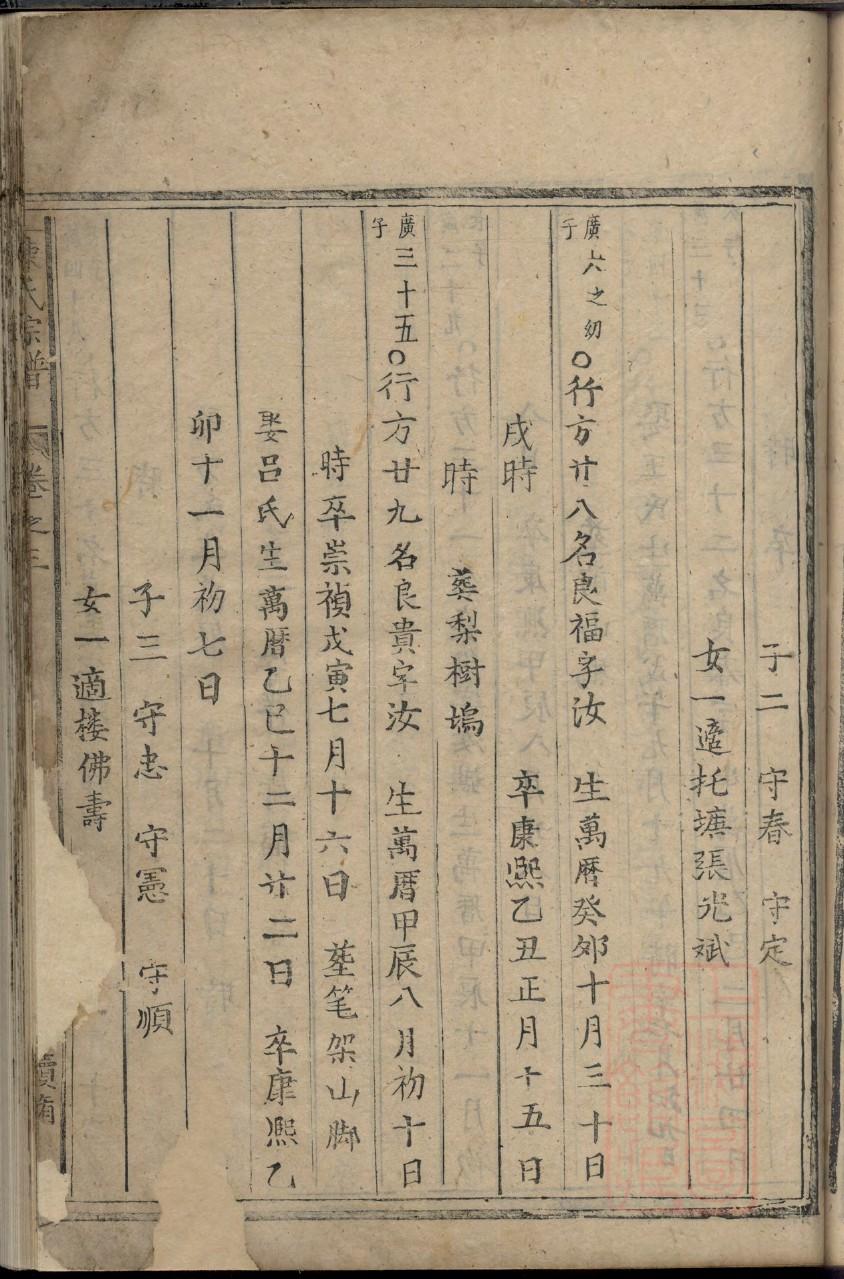 子二 守春 守定
女一適托塘張光斌
廣六之幼子○行方廿八名良福字汝 生萬曆癸卯十月三十日
戌時 卒康熙乙丑正月十五日
時 葬梨樹塢
廣三十五子○行方廿九名良貴字汝 生萬曆甲辰八月初十日
時卒崇禎戊寅七月十六日 塟笔架山脚
娶呂氏生萬曆乙巳十二月廿二日 卒康熙乙
卯十一月初七日
子三 守忠 守憲 守順
女一適楼佛壽
氏宗譜 卷之三 續脩